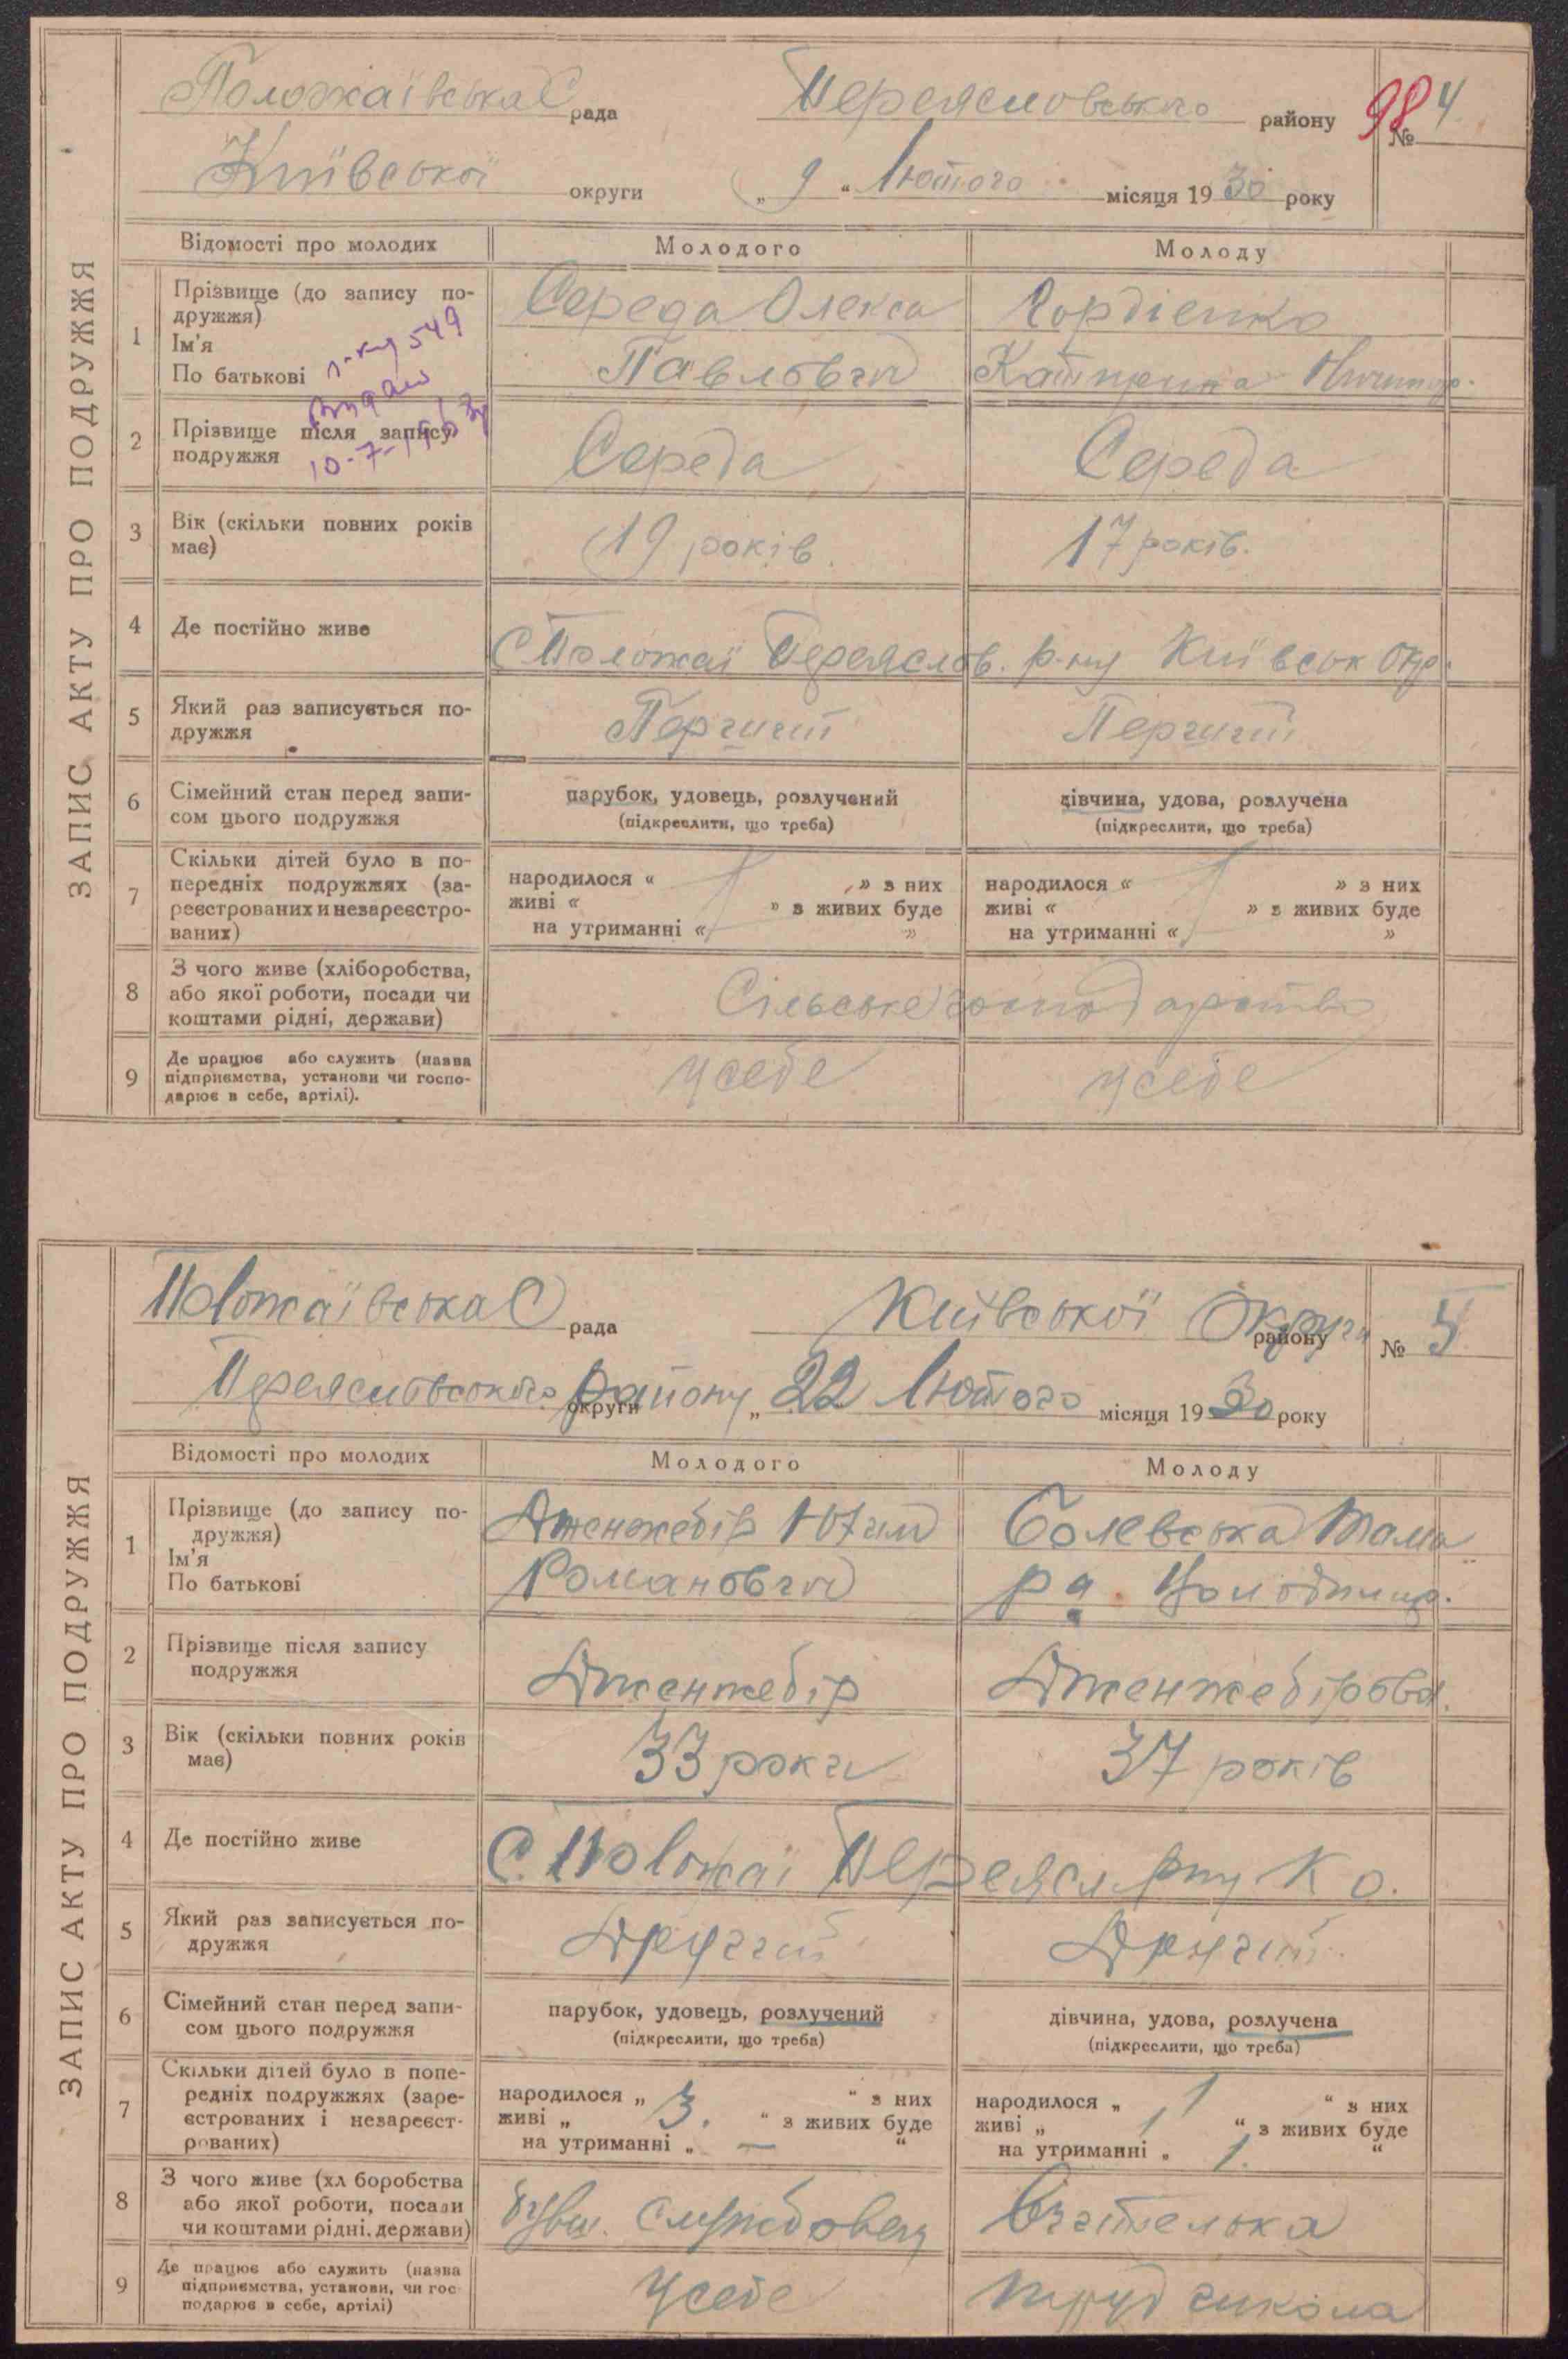 ЗАПИС АКТУ ПРО ПОДРУЖЖЯ
Положаївська С рада Переяславського району № 98 4
Київської округи „ 9 “ Лютого місяця 1930 року
Відомості про молодих Молодого Молоду
1 Прізвище (до запису подружжя) Середа Олекса Гордієнко
Ім'я
По батькові Павлович Катерина
549
10-7-
2 Прізвище після запису подружжя Середа Середа
3 Вік (скільки повних років має) 19 років. 17 років.
4 Де постійно живе С Положаї Переяслов. р-ну Київськ Окр.
5 Який раз записується подружжя Перший Перший
6 Сімейний стан перед записом цього подружжя парубок, удовець, розлучений дівчина, удова, розлучена
(підкреслити, що треба) (підкреслити, що треба)
7 Скільки дітей було в попередніх подружжях (зареєстрованих и незареєстрованих)
народилося « » з них народилося « » з них
живі « » з живих буде живі « » з живих буде
на утриманні « » на утриманні « »
8 З чого живе (хліборобства, або якої роботи, посади чи коштами рідні, держави) Сільське господарство
9 Де працює або служить (назва підприємства, установи чи господарює в себе, артілі). У себе у себе
ЗАПИС АКТУ ПРО ПОДРУЖЖЯ
Положаївська С рада Київської Округи району № 5
Переяславського району округи „ 22 Лютого місяця 1930 року
Відомості про молодих Молодого Молоду
1 Прізвище (до запису подружжя) Дженжебір Юхим Болевська Тама
Ім'я
По батькові Романович ра
2 Прізвище після запису подружжя Дженжебір Дженжебірова.
3 Вік (скільки повних років має) 33 роки 37 років
4 Де постійно живе С. Положаї Переясл. рну К о.
5 Який раз записується подружжя Другий Другий
6 Сімейний стан перед записом цього подружжя парубок, удовець, розлучений дівчина, удова, розлучена
(підкреслити, що треба) (підкреслити, що треба)
7 Скільки дітей було в попередніх подружжях (зареєстрованих і незареєстрованих)
народилося „ 3. “ з них народилося „ 1 “ з них
живі „ “ з живих буде живі „ 1 “ з живих буде
на утриманні „ — “ на утриманні „ 1. “
8 З чого живе (хл боробства або якої роботи, посади чи коштами рідні, держави) бувш. службовец Вчителька
9 Де працює або служить (назва підприємства, установи, чи господарює в себе, артілі) У себе Труд школа